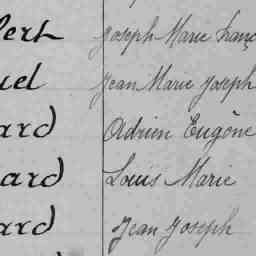 bert Joseph Marie Franç
uel Jean Marie Joseph
ard Adrien Eugène
ard Louis Marie
ard Jean Joseph